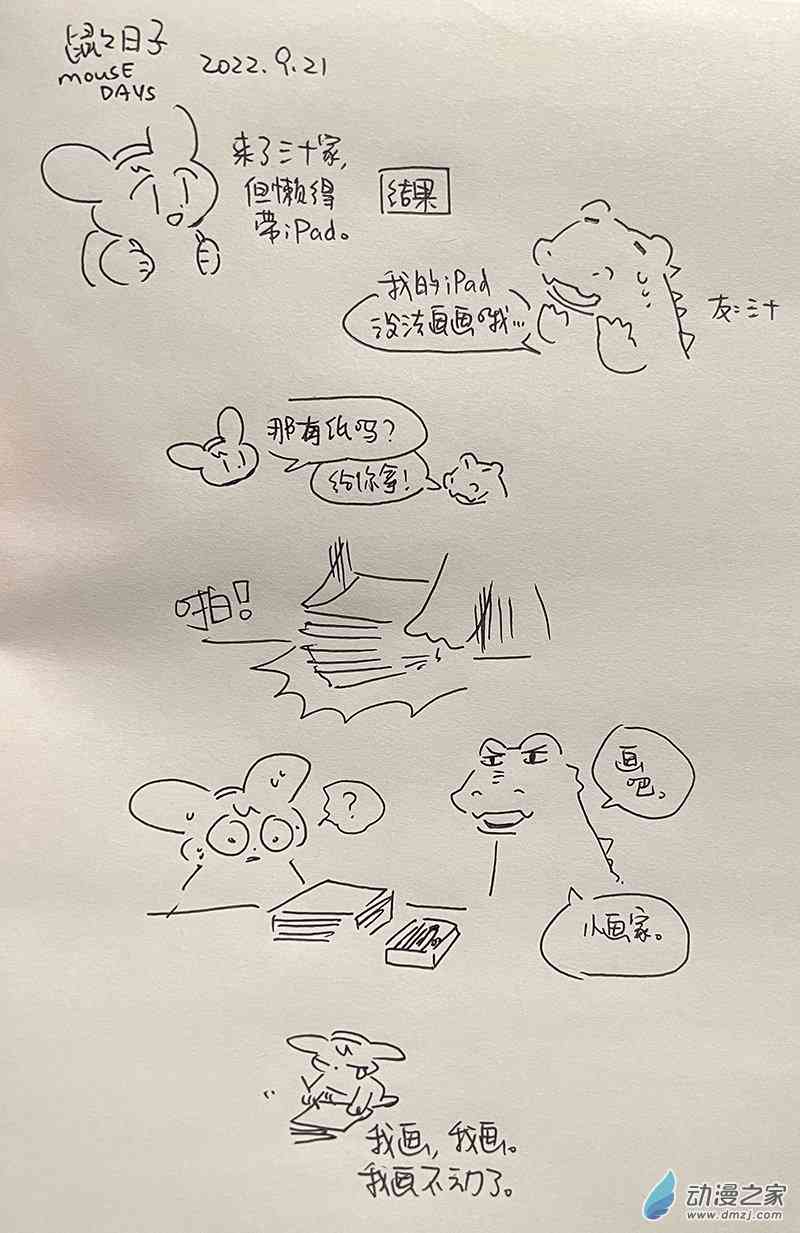 鼠鼠日子
MOUSE
DAYS
2022.9.21
来了三十家,
但懒得
带iPad。
结果
我的iPad
没法画画哦...
友:三十
那有纸吗?
给你拿!
啪!
?
画
吧。
小画家。
我画,我画。
我画不动了。
动漫之家
www.dmzj.com